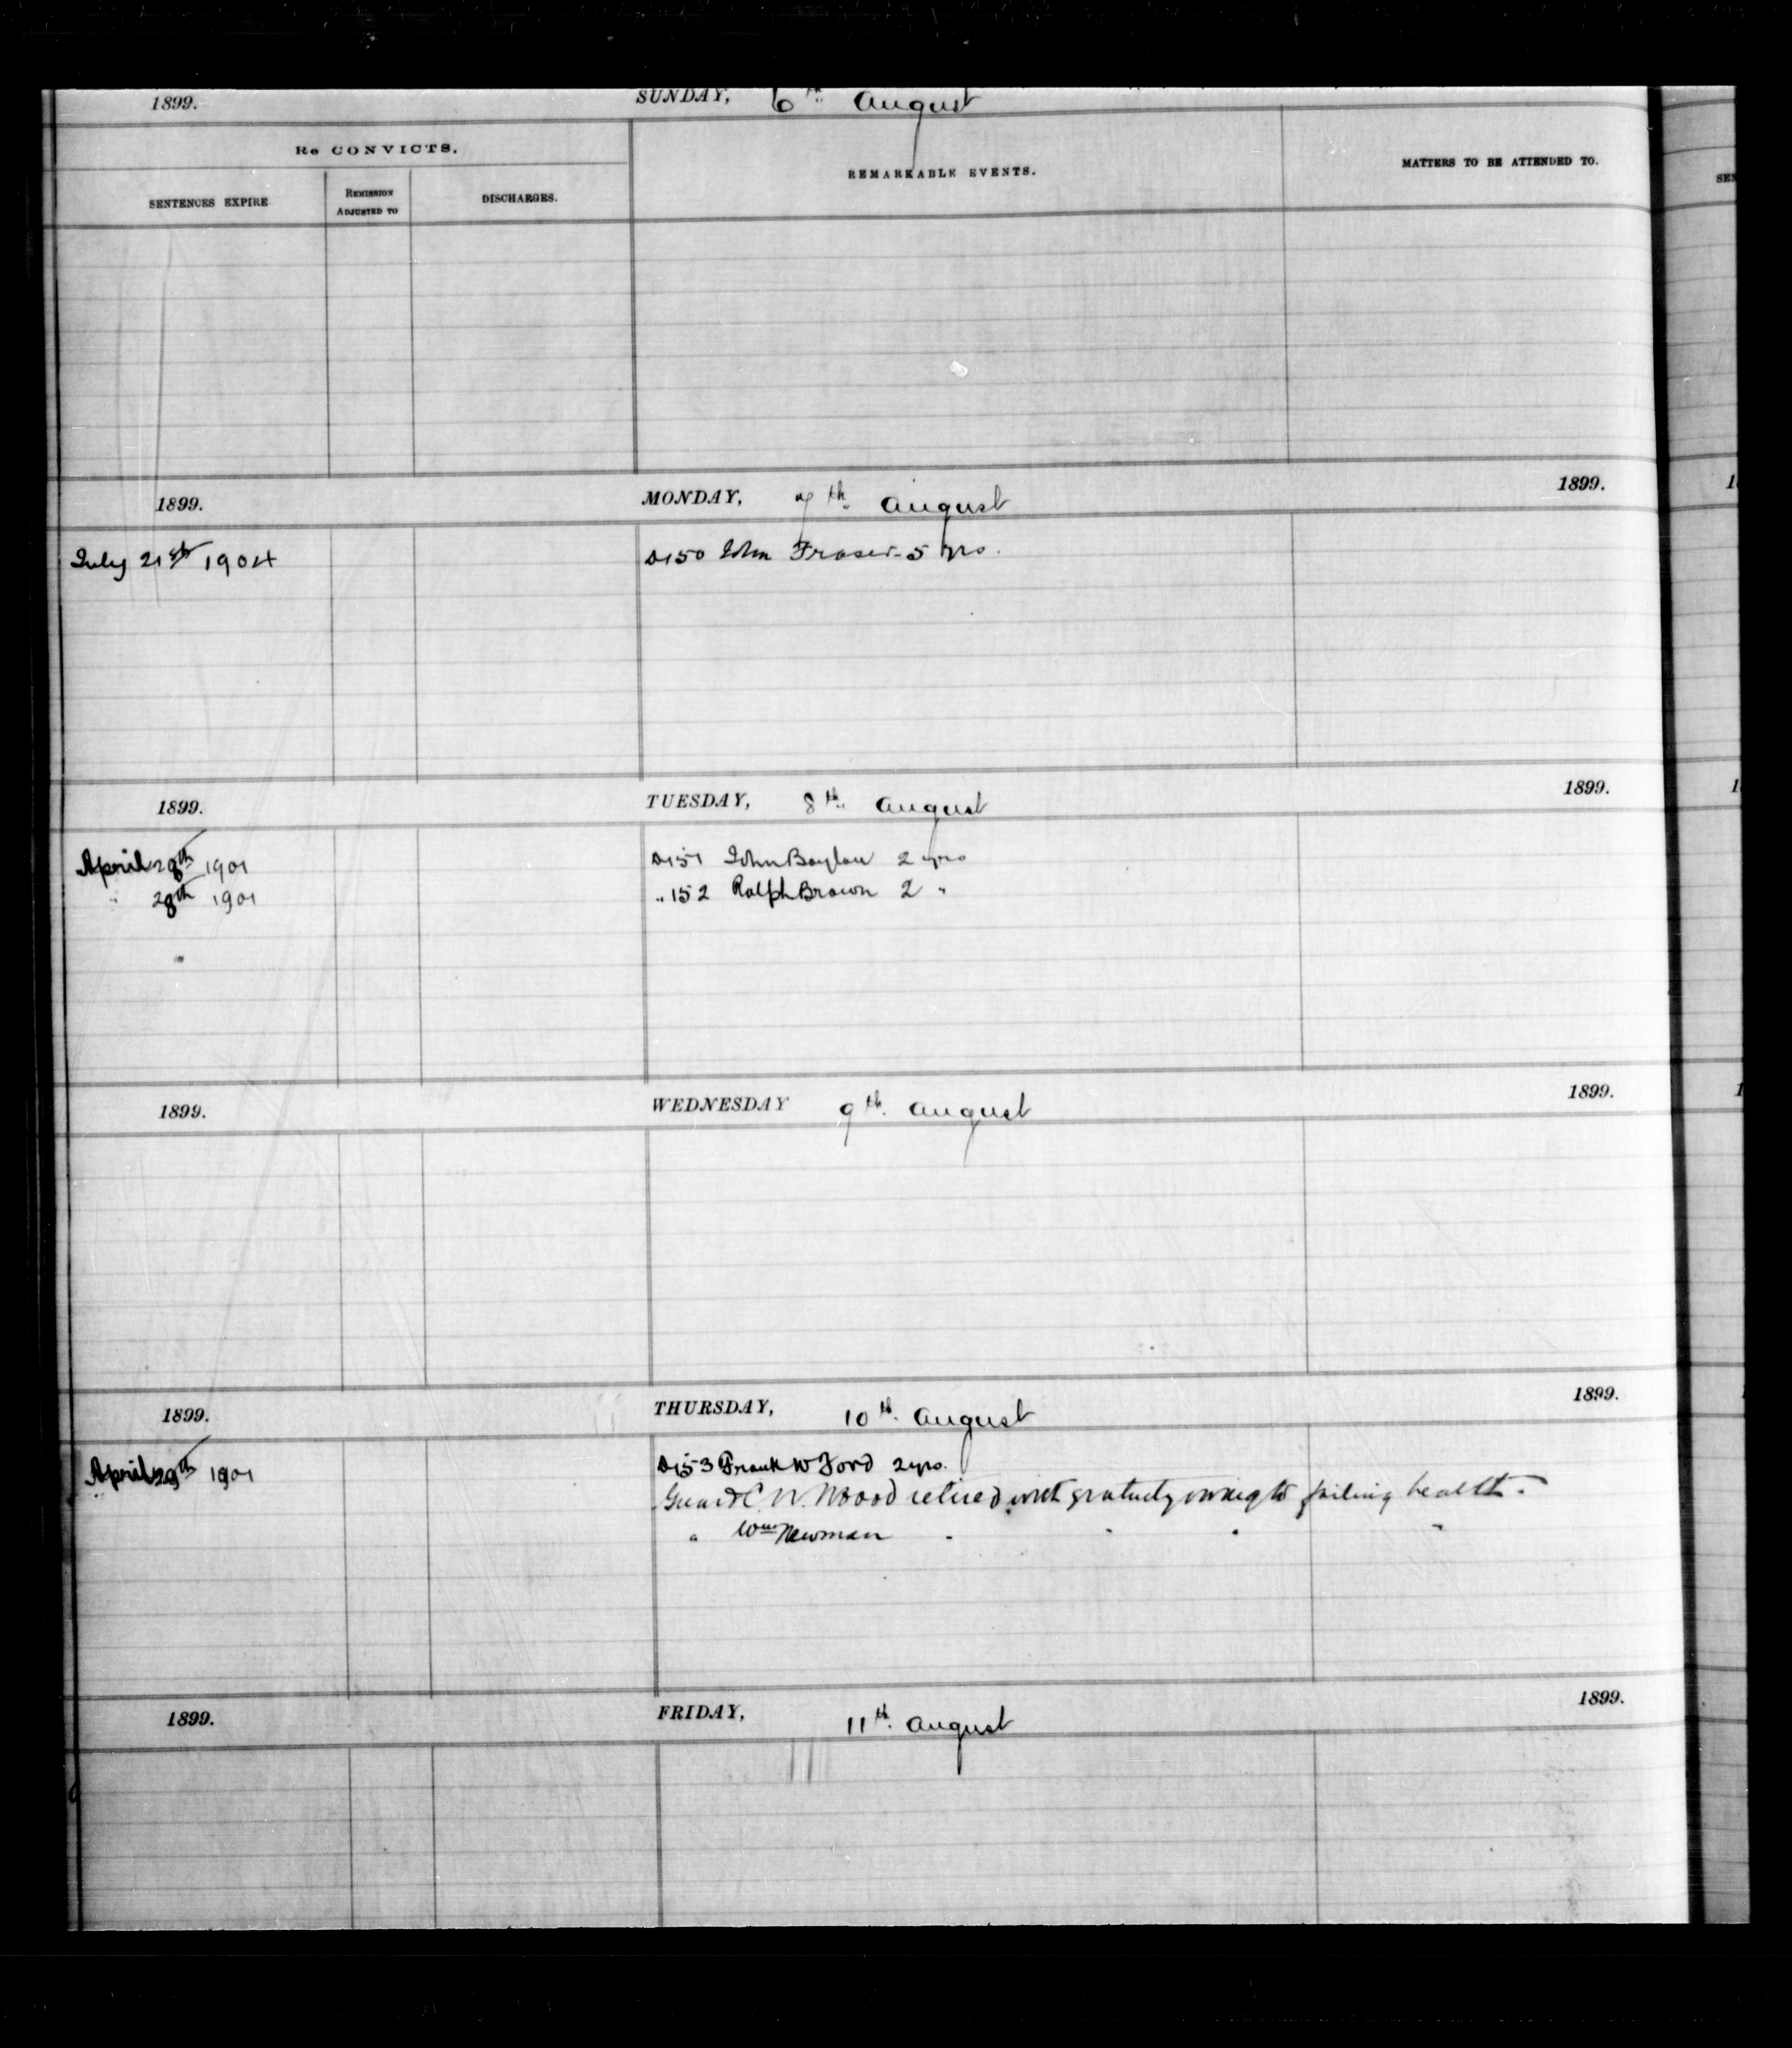 1899. SUNDAY, 6th August
Re CONVICTS.
SENTENCES EXPIRE REMISSION ADJUSTED TO DISCHARGES. REMARKABLE EVENTS. MATTERS TO BE ATTENDED TO.
1899. MONDAY, 7th August 1899.
July 21st 1904 D150 John Fraser - 5 yrs.
1899. TUESDAY, 8th August 1899.
April 28th 1901 D151 John Boylan 2 yrs
" 28th 1901 " 152 Ralph Brown 2 "
1899. WEDNESDAY 9th August 1899.
1899. THURSDAY, 10th August 1899.
April 29th 1901 D153 Frank W Ford 2 yrs.
Guard C. N. Wood retired with gratuity owing to failing health.
" Wm Newman " " " "
1899. FRIDAY, 11th August 1899.